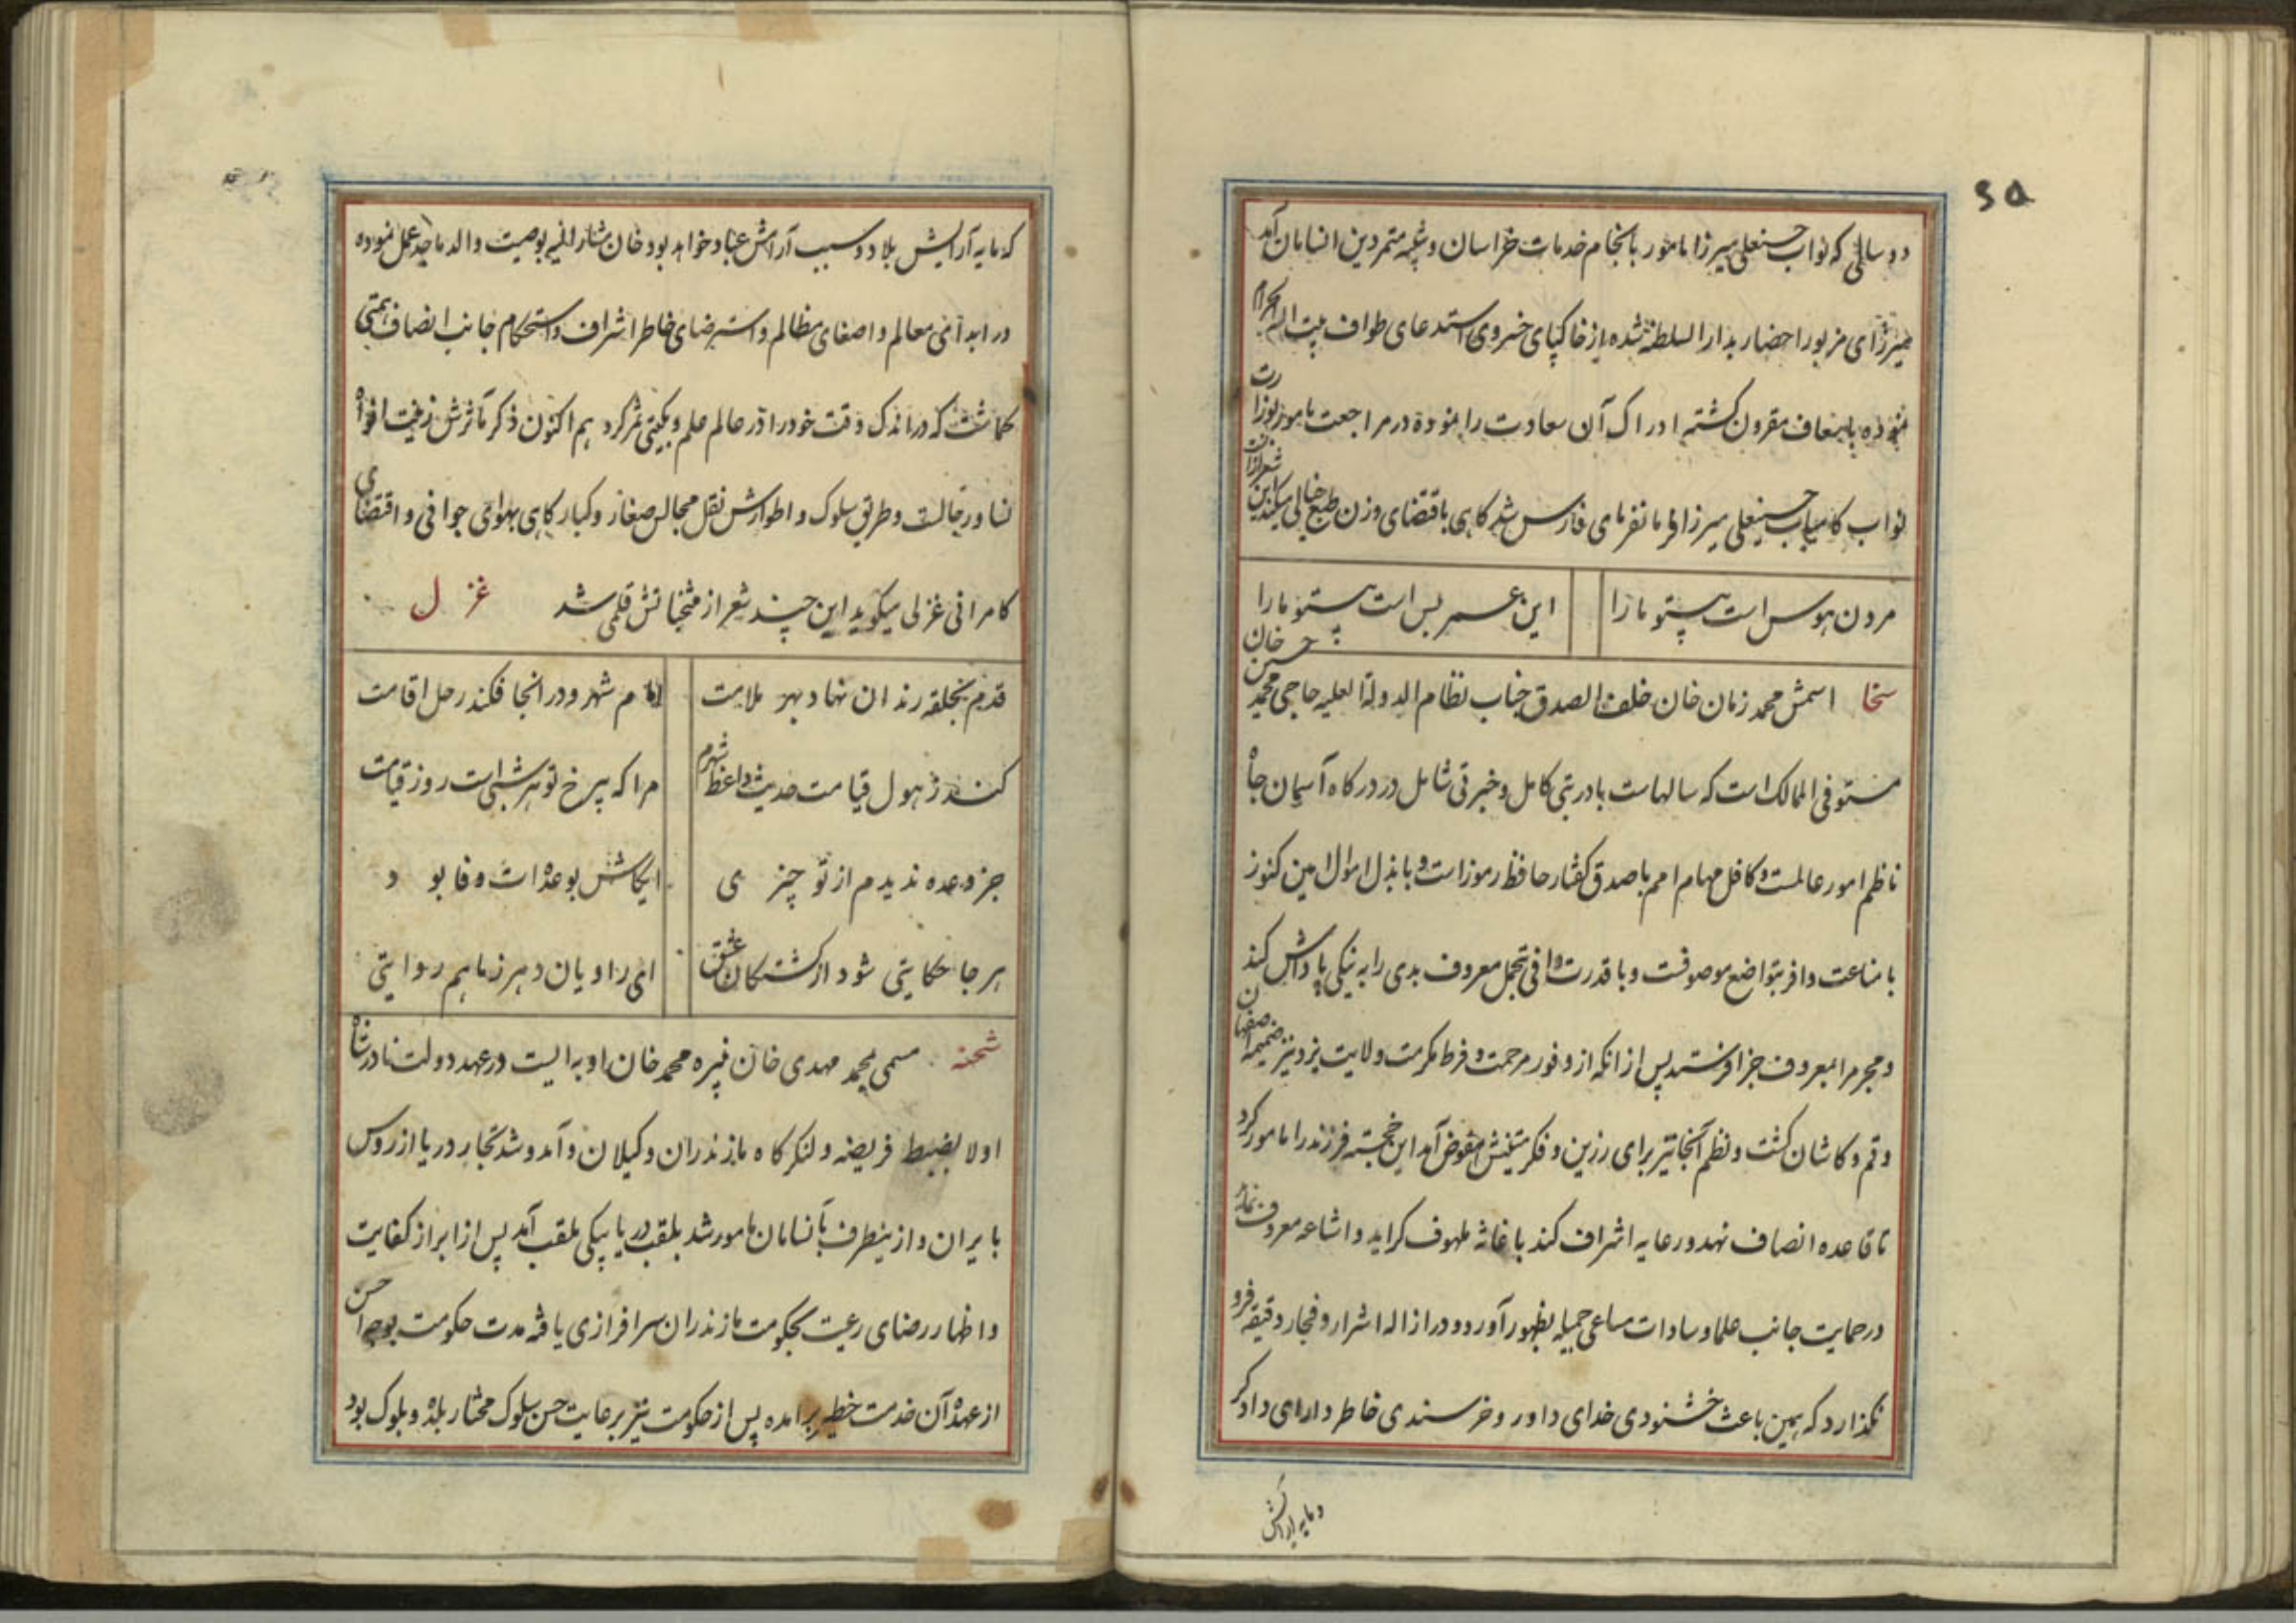 دو سالی که نواب حسنعلی میرزا مامور بانجام خدمات خراسان و تنبیه متمردین انسامان آمد
میرزای مزبور احضار بدار السلطنه شده از خاکپای خسروی استدعای طواف بیت الله الحرام
نموده باسعاف مقرون گشته ادراک آن سعادت را نموده در مراجعت مامور بوزارت
نواب کامیاب حسینعلی میرزا فرمانفرمای فارس شد کاهی باقتضای وزن طبع خیالی میکند این شعر ازان
مردن هوس است بیتو ما را این عمر بس است بیتو ما را
سخا اسمش محمد زمان خان خلف الصدق جناب نظام الدولة العلیه حاجی محمد حسین خان
مستوفی الممالک است که سالهاست با دریتی کامل و خبرتی شامل در درکاه آسمان جاه
ناظم امور عالمست و کافل مهام امم با صدق کفتار حافظ رموز است و با بذل اموال امین کنوز
با مناعت وافر بتواضع موصوفست و با قدرت وافی بتحمل معروف بدی را به نیکی پاداش کند
و مجرم را بمعروف جزا فرستد پس از انکه از وفور مرحمت و فرط مکرمت ولایت یزد نیز ضمیمه اصفهان
و قم و کاشان کشت و نظم آنجا نیز برای رزین و فکر متینش مفوض آمد این خجسته فرزند را مامور کرد
تا قاعده انصاف نهد و رعایه اشراف کند باغاثه ملهوف کراید و اشاعه معروف نماید
در حمایت جانب علما و سادات مساعی جمیله بظهور آورد و در ازاله اشرار و فجار دقیقه فرو
نکذارد که همین باعث خشنودی خدای داور و خرسندی خاطر دارای دادکر
و مایه آرایش
که مایه آرایش بلاد و سبب آرامش عباد خواهد بود خان مشار الیه بوصیت والد ماجد عمل نموده
در ابدآئی معالم و اصغای مظالم و استرضای خاطر اشراف و استحکام جانب انصاف همتی
کماشت که در اندک وقت خود را در عالم علم و بنیکیتی ثمر کرد هم اکنون ذکر مآثرش زینت افواه
نسا و رجالست و طریق سلوک و اطوارش نقل مجالس صغار و کبار کاهی بهوای جوانی و اقتضای
کامرانی غزلی میکوید این چند شعر از منتخباتش قلمی شد غزل
قدم بحلقه رندان نهاد بهر ملامت امام شهر و در انجا فکند رحل اقامت
کند ز هول قیامت حدیث واعظ شهرم مرا که بی رخ تو هر شبی است روز قیامت
جز وعده ندیدم از تو چیزی ایکاش بوعده ات وفا بود
هر جا حکایتی شود از کشتکان عشق ای راویان دهر ز ما هم روایتی
شحنه مسمی بمحمد مهدی خان نبیره محمد خان اوبه ایست در عهد دولت نادر شاه
اولا بضبط فریضه و لنکرکاه مازندران و کیلان و آمد و شد تجار دریا از روس
بایران و ازینطرف بآنسامان مامور شد بلقب دریا بیکی ملقب آمد پس از ابراز کفایت
و اظهار رضای رعیت بحکومت مازندران سرافرازی یافته مدت حکومت بوجه احسن
از عهده آن خدمت خطیر برامده پس از حکومت نیز برعایت حسن سلوک مختار بلده و بلوک بود